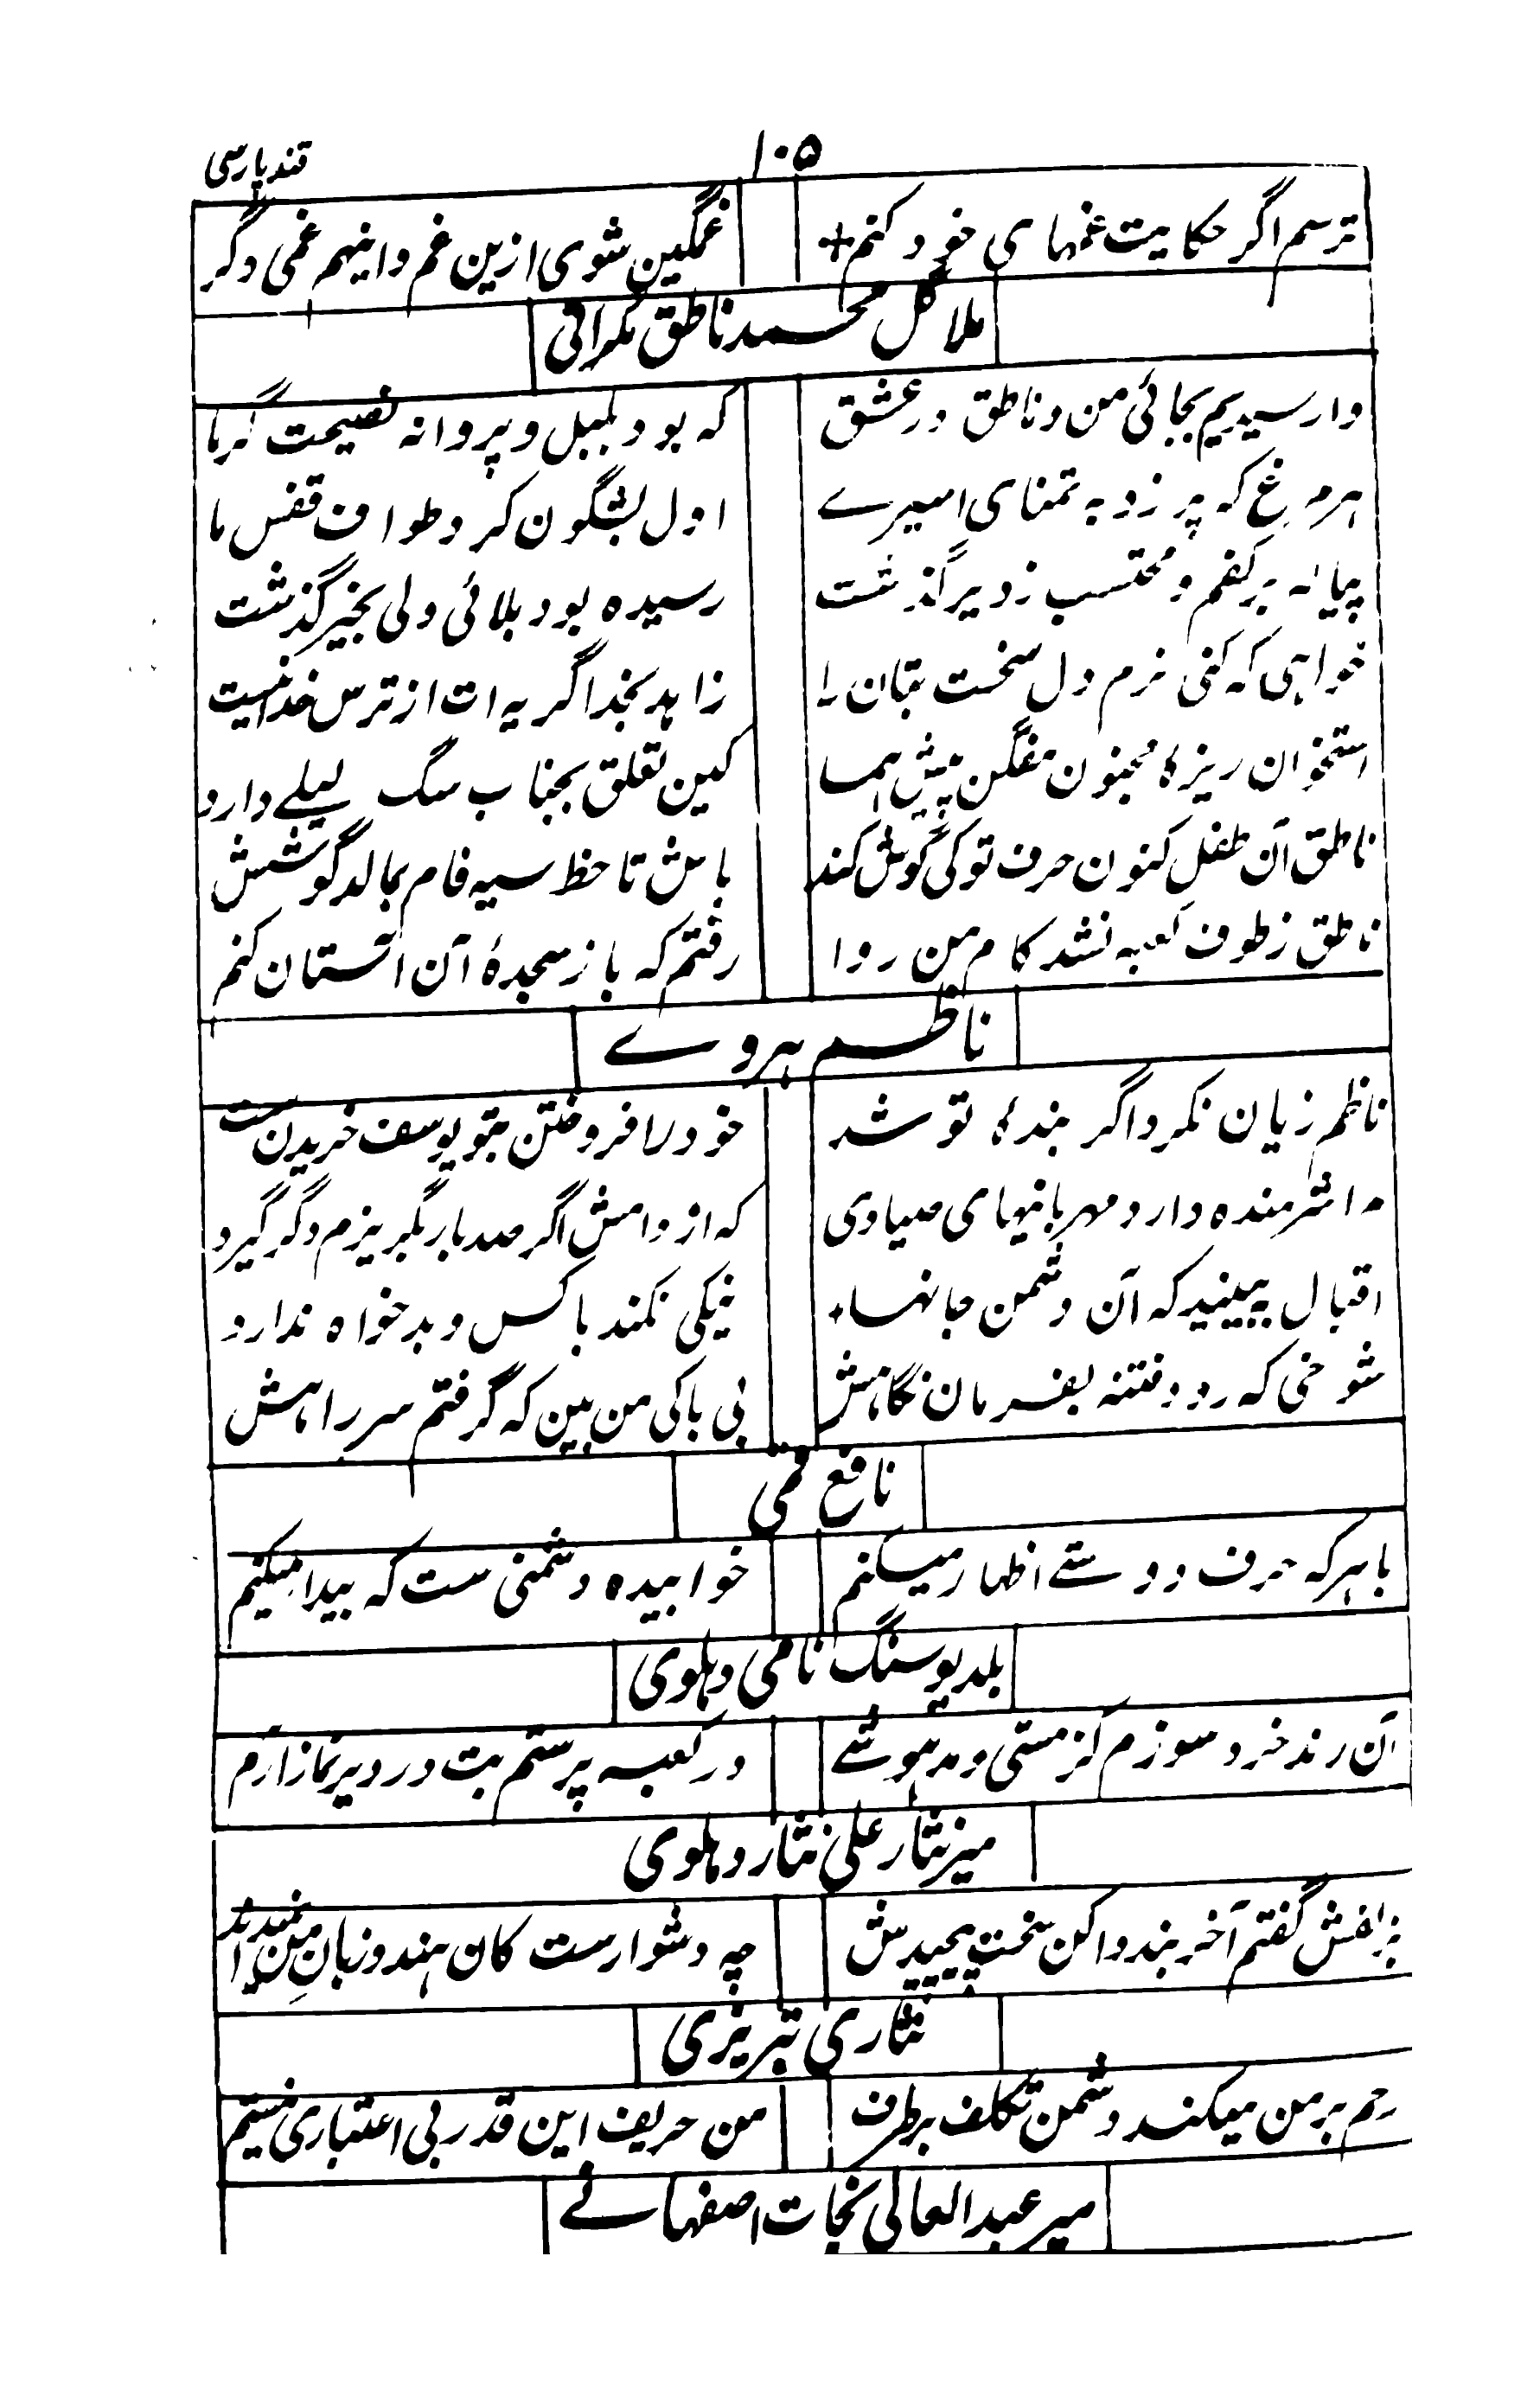 ۱۰۵
قند پارسی
ترسم اگر حکایت غمهای خود کنم + غمگین شوی ازین غم و اینهم غمی دگر
ملا گل محمد ناطق مکرانی
وا رسیدیم بجائی من و ناطق در عشق که بود بلبل و پروانه نصیحت گر ما
هر مرغ که پر زد به تمنای اسیرے اول بشگون کرد طواف قفس ما
پیمانه بر کفم و محتسب ز دیر گذشت رسیده بود بلائی ولی بخیر گذشت
خواهی که کنی نرم دل سخت بتان را زاهد بخدا گریه ات از ترس خدا نیست
استخوان ریزهٔ مجنون مفگن پیش هما کین تعلق بجناب سگ لیلے دارد
ناطق آن طفل کنون حرف تو کی گوش کند باش تا خط سیه فام بمالد گوشش
ناطق ز طوف کعبه نشد کام من روا رفتم که باز سجدهٔ آن آستان کنم
ناظم هروے
ناظم زیان نکرد اگر بندهٔ تو شد خود را فروختن بتو یوسف خریدن ست
مرا شرمنده دارد مهربانیهای صیادی که از دامش اگر صد بار بگریزم دگر گیرد
اقبال ببینید که آن دشمن جانها + نیکی نکند با کس و بدخواه ندارد
شوخی که رود فتنه بفرمان نگاهش بی باکی من بین که گرفتم سر راهش
نافع قمی
با هر که حرف دوستے اظهار میکنم خوابیده دشمنی ست که بیدار میکنم
بلدیو سنگ نامی دهلوی
آن رند خرد سوزم کز مستی و مدهوشے در کعبه پرستم بت در دیر نماز آرم
میر نثار علی نثار دهلوی
بزلفش گفتم آخر بند وا کن سخت پیچیدش چه دشوارست کان هندو زبان من نمیداند
نثاری تبریزی
رحم بر من میکند دشمن تکلف بر طرف من حریف این قدر بی اعتباری نیستم
میر عبد العالی نجات اصفهانے